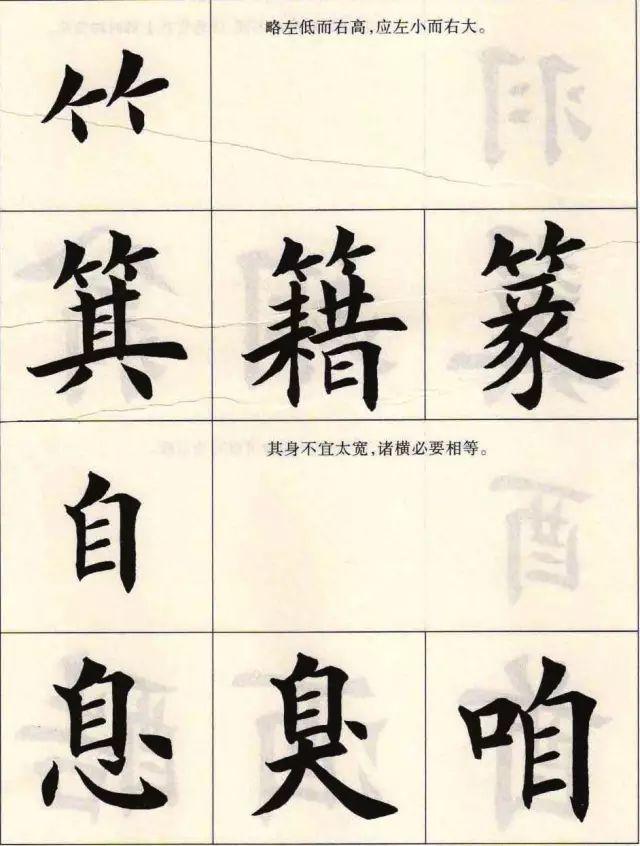 略左低而右高，应左小而右大。
竹
箕 籍 篆
其身不宜太宽，诸横必要相等。
自
息 臭 咱